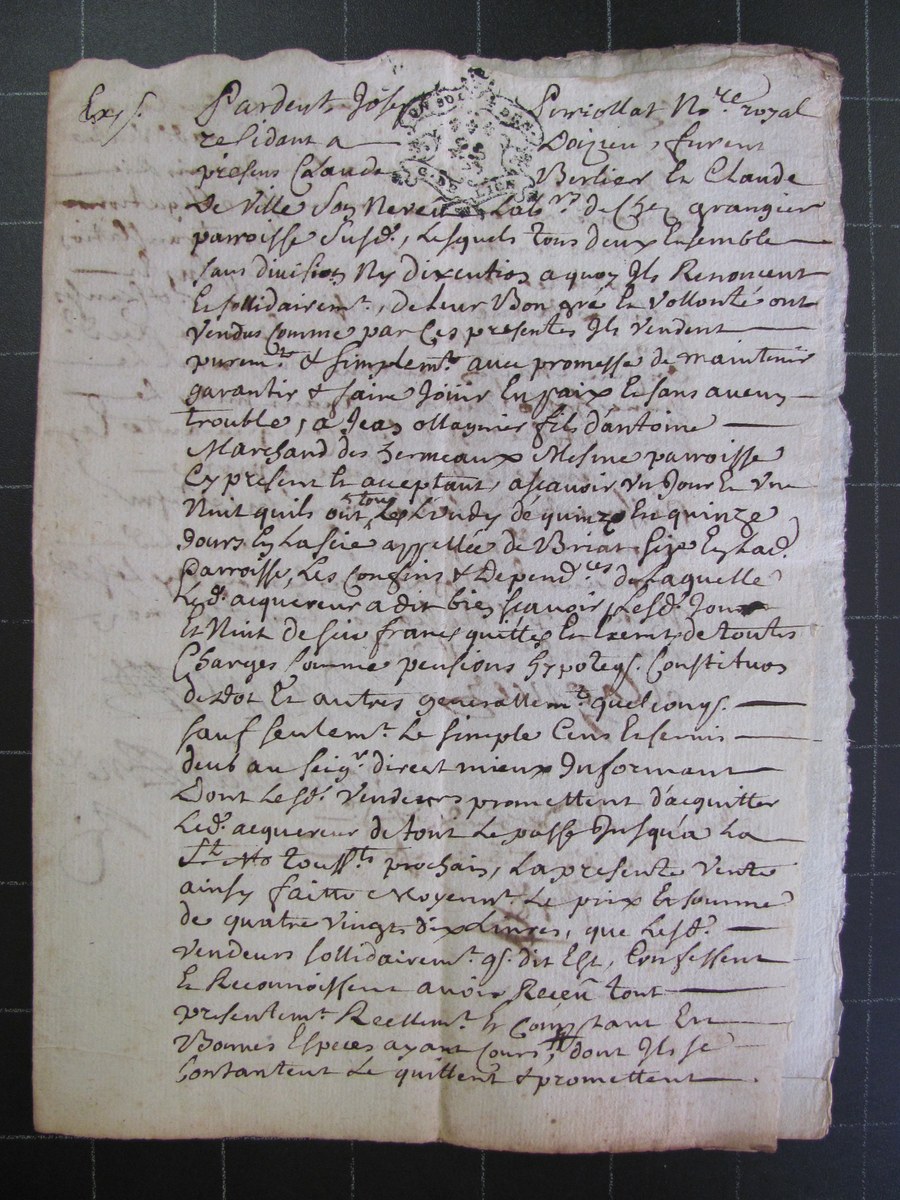 Exp.
Pardevt Joseph Perriollat No.re royal
residant a Doizieu, furent
presens Claude Berlier Et Claude
De Ville Son Neveu Lab.rs de chez grangier
parroisse Susd., Lesquels tous deux Ensemble
sans division Ny dixcution a quoy Ils Renoncent
Et sollidairemt., de Leur Bon gré Et Vollonté ont
Vendus Comme par Ces presentes Ils Vendent
puremt. & simplemt. avec promesse de maintenir
garantir & faire Joüir En paix Et sans aucun
trouble, a Jean ollagnier fils d'antoine
Marchand des hermeaux Mesme parroisse
Cy present Et acceptant, ascavoir Un Jour Et Une
Nuit quils ont tous Les Lundy de quinze En quinze
Jours En La scie appellée de Briat Size En Lad.
Parroisse, Les Confins & Depend.ces de Laquelle
Led. acquereur a dit bien scavoir Lesd. Jour
Et Nuit de scie franc quitte Et Exemt de toutes
Charges Comme pensions hypoteqs. Constituons
de Dot Et autres generallemt. quelconqs.
sauf seulemt. Le simple Cens Et servis
deub au seigr. direct mieux Informant
Dont Lesd. Vendeurs promettent d'acquitter
Led. acquereur de tout Le passé Jusqu'a La
St. No toussts. prochain, La presente Vente
ainsy faitte Moyennt. Le prix Et somme
de quatre Vingt dix Livres, que Lesd.
Vendeurs sollidairemt. qs. dit Est, Confessent
Et Reconnoissent avoir Receu tout
presentemt. Reellemt. Et Comptant En
Bonnes Especes ayant Cours, dont Ils se
Contantent Le quittent & promettent